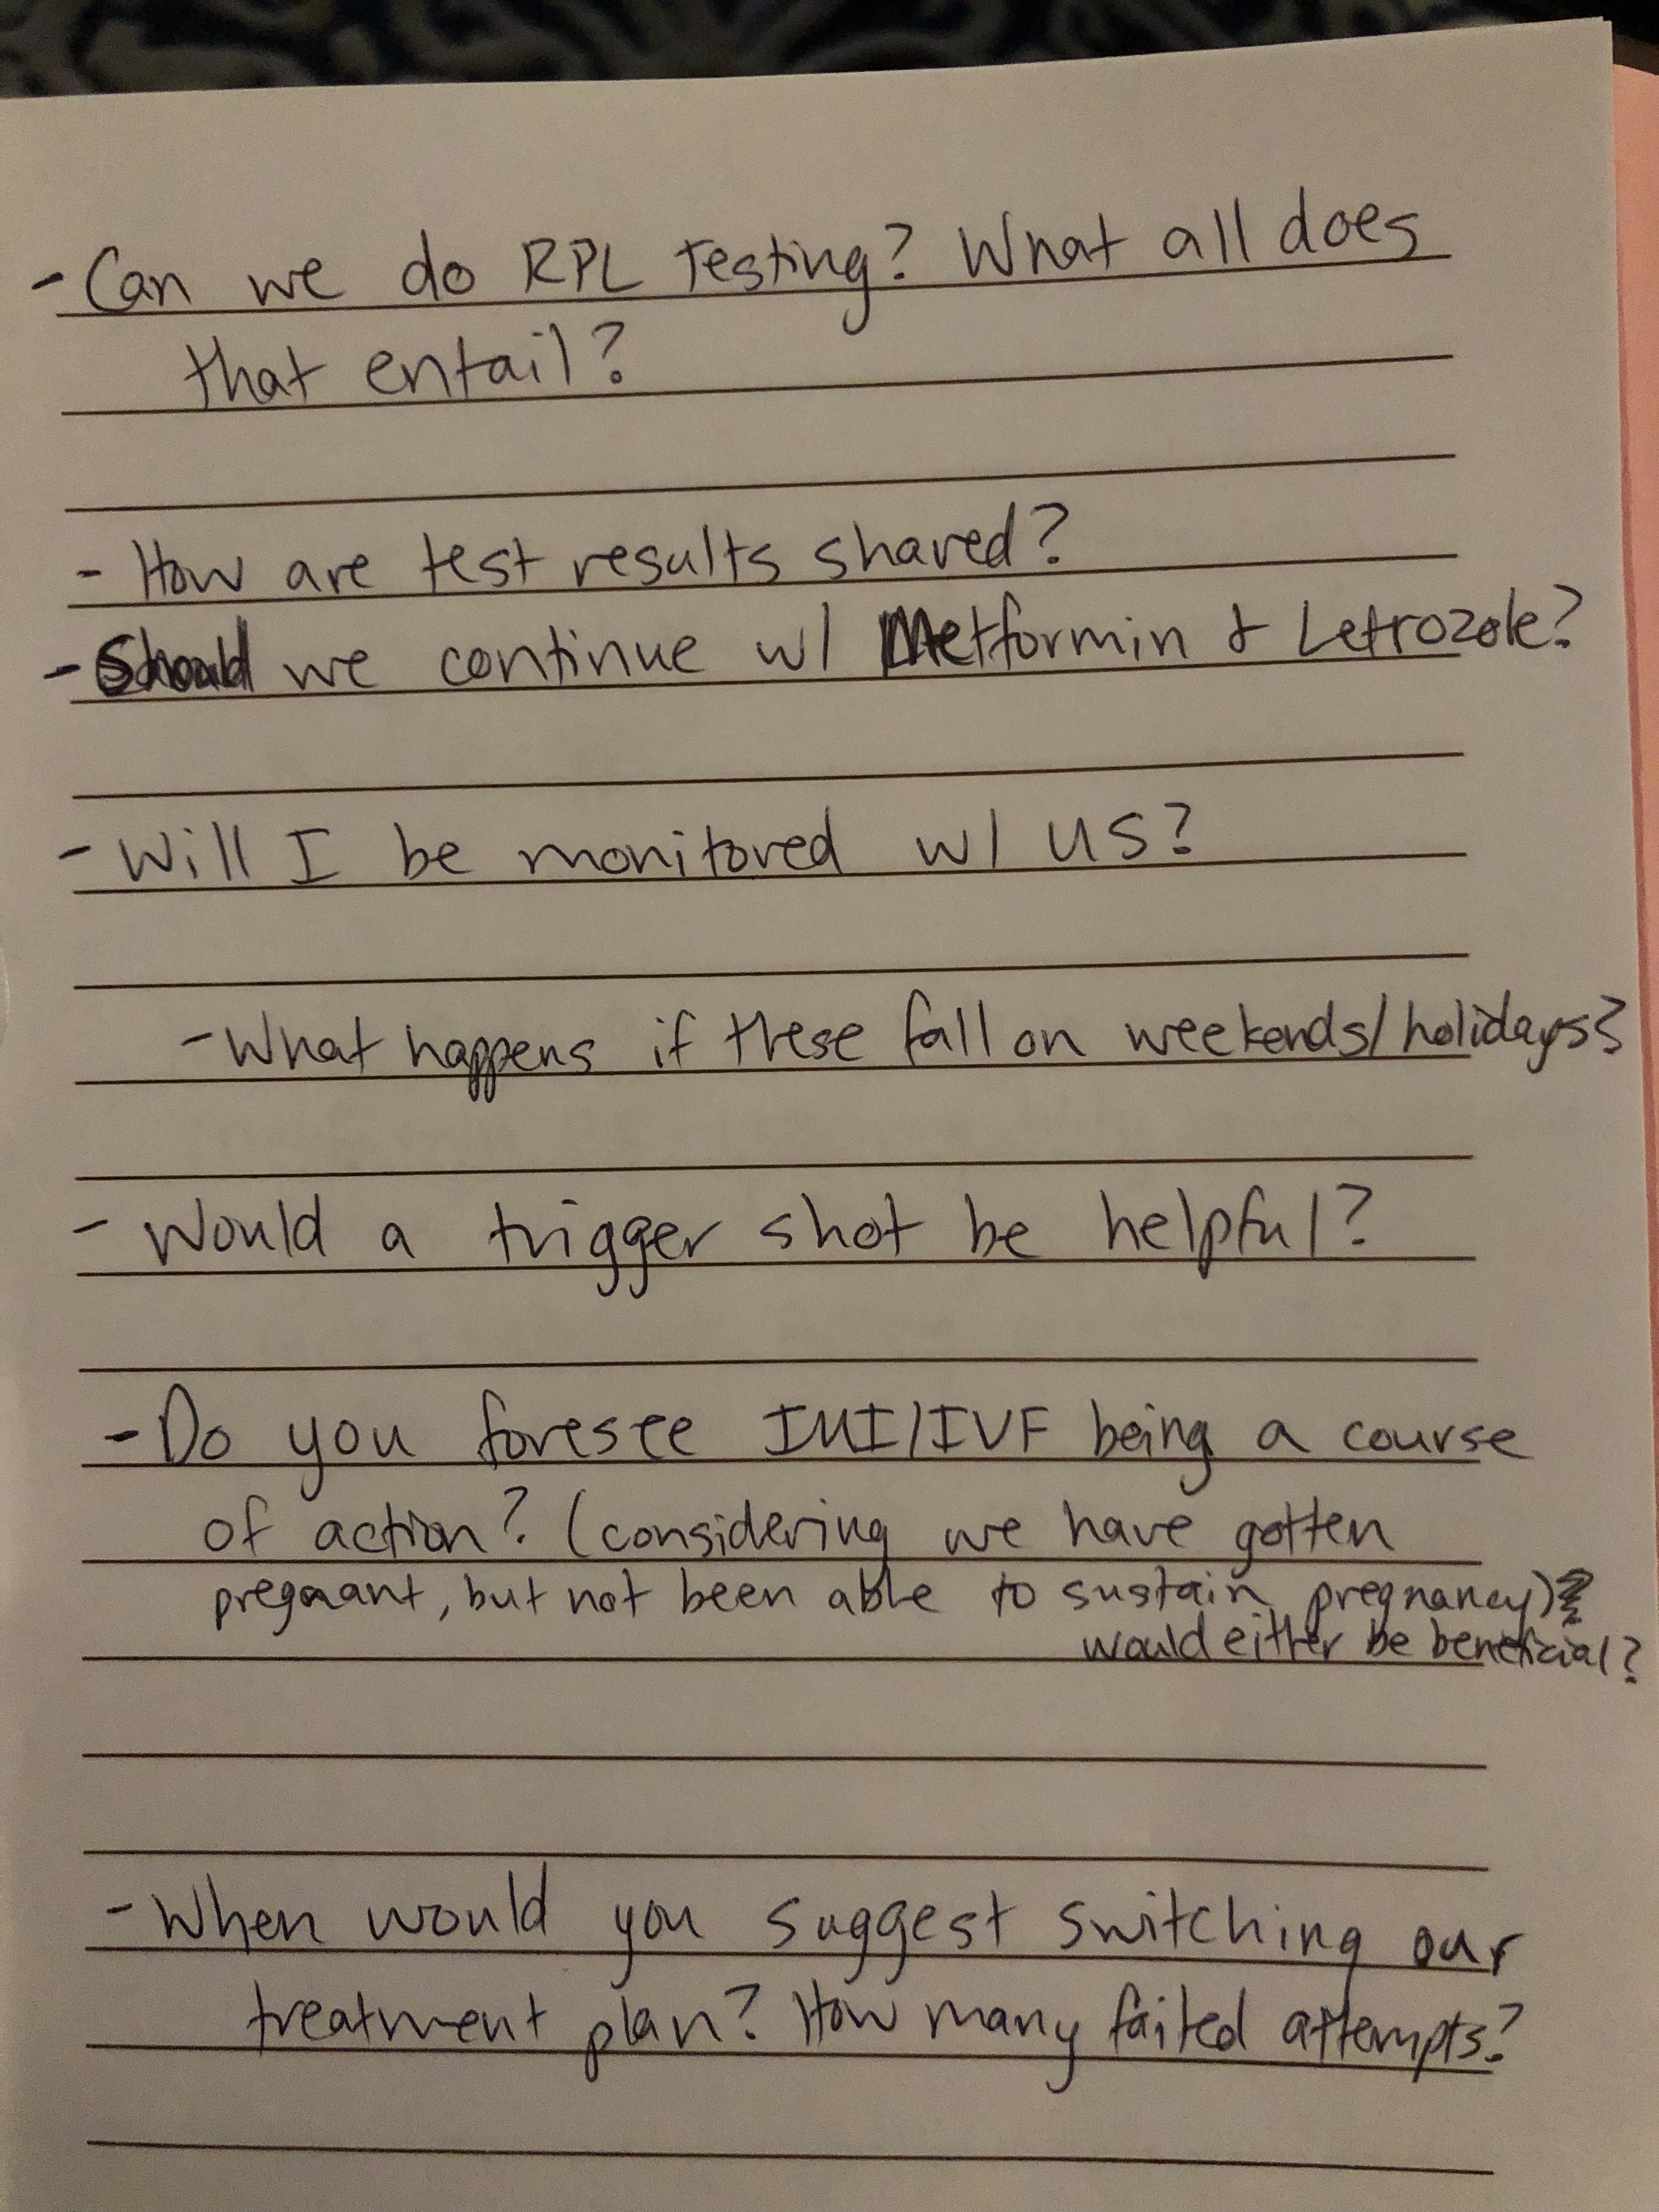 - Can we do RPL Testing? What all does
that entail?
- How are test results shared?
- Should we continue w/ Metformin & Letrozole?
- Will I be monitored w/ US?
- What happens if these fall on weekends/holidays?
- Would a trigger shot be helpful?
- Do you foresee IUI/IVF being a course
of action? (considering we have gotten
pregnant, but not been able to sustain pregnancy)
would either be beneficial?
- When would you suggest switching our
treatment plan? How many failed attempts?